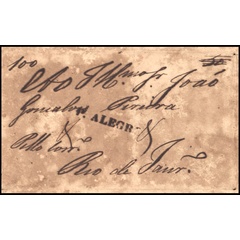 100
Ao Illmo Sr. João
Gonçalves Pereira
P. ALEGRE
Pello Corro.
Rio de Janro.